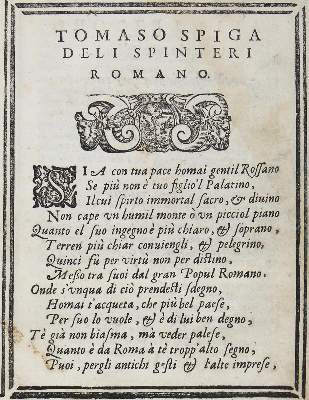 TOMASO SPIGA
DELI SPINTERI
ROMANO.
SIA con tua pace homai gentil Rossano
Se più non è tuo figlio'l Palatino,
Il cui spirto immortal sacro, & diuino
Non cape vn humil monte ò vn picciol piano
Quanto el suo ingegno è più chiaro, & soprano,
Terren più chiar conuiengli, & pelegrino,
Quinci fù per virtù non per distino,
Messo tra suoi dal gran Popul Romano.
Onde s'vnqua di ciò prendesti sdegno,
Homai t'acqueta, che più bel paese,
Per suo lo vuole, & è di lui ben degno,
Tè già non biasma, mà veder palese,
Quanto è da Roma à tè tropp'alto segno,
Puoi, pergli antichi gesti & l'alte imprese,